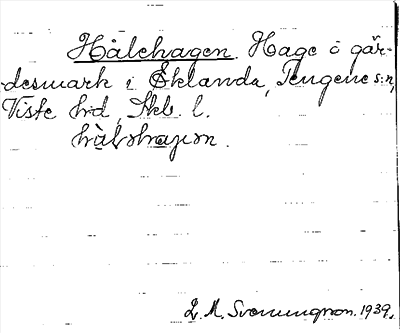 Hålehagen. Hage i går-
desmark i Eklanda, Tengene s:n,
Viste hd, Skb. l.

L. M. Svenungsson. 1939.